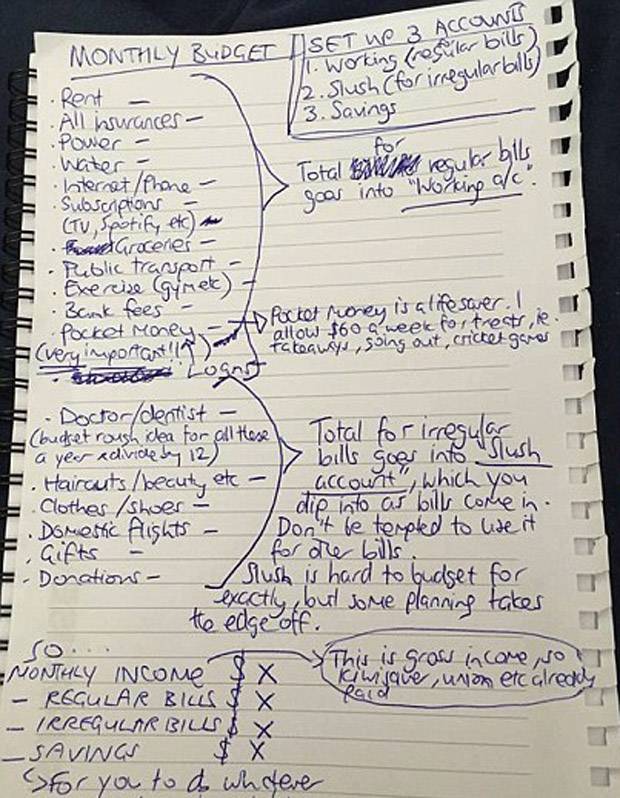 MONTHLY BUDGET
SET UP 3 ACCOUNTS
1. Working (regular bills)
2. Slush (for irregular bills)
3. Savings
· Rent —
· All insurances —
· Power —
· Water —
· Internet/Phone —
· Subscriptions —
(TV, Spotify, etc)
· Groceries —
· Public transport —
· Exercise (gym etc) —
· Bank fees —
· Pocket Money —
(very important!!↑)
· Loans
for
Total regular bills
goes into "Working a/c".
Pocket money is a lifesaver. I
allow $60 a week for treats, ie.
takeaways, going out, cricket games
· Doctor/dentist —
(budget rough idea for all these
a year & divide by 12)
· Haircuts/beauty etc —
· Clothes/shoes —
· Domestic flights —
· Gifts —
- Donations —
Total for irregular
bills goes into "Slush
account", which you
dip into as bills come in.
Don't be tempted to use it
for other bills.
Slush is hard to budget for
exactly, but some planning takes
the edge off.
So....
MONTHLY INCOME $ X
— REGULAR BILLS $ X
— IRREGULAR BILLS $ X
— SAVINGS $ X
↳ For you to do whatever
This is gross income, so
Kiwisaver, union etc already
paid